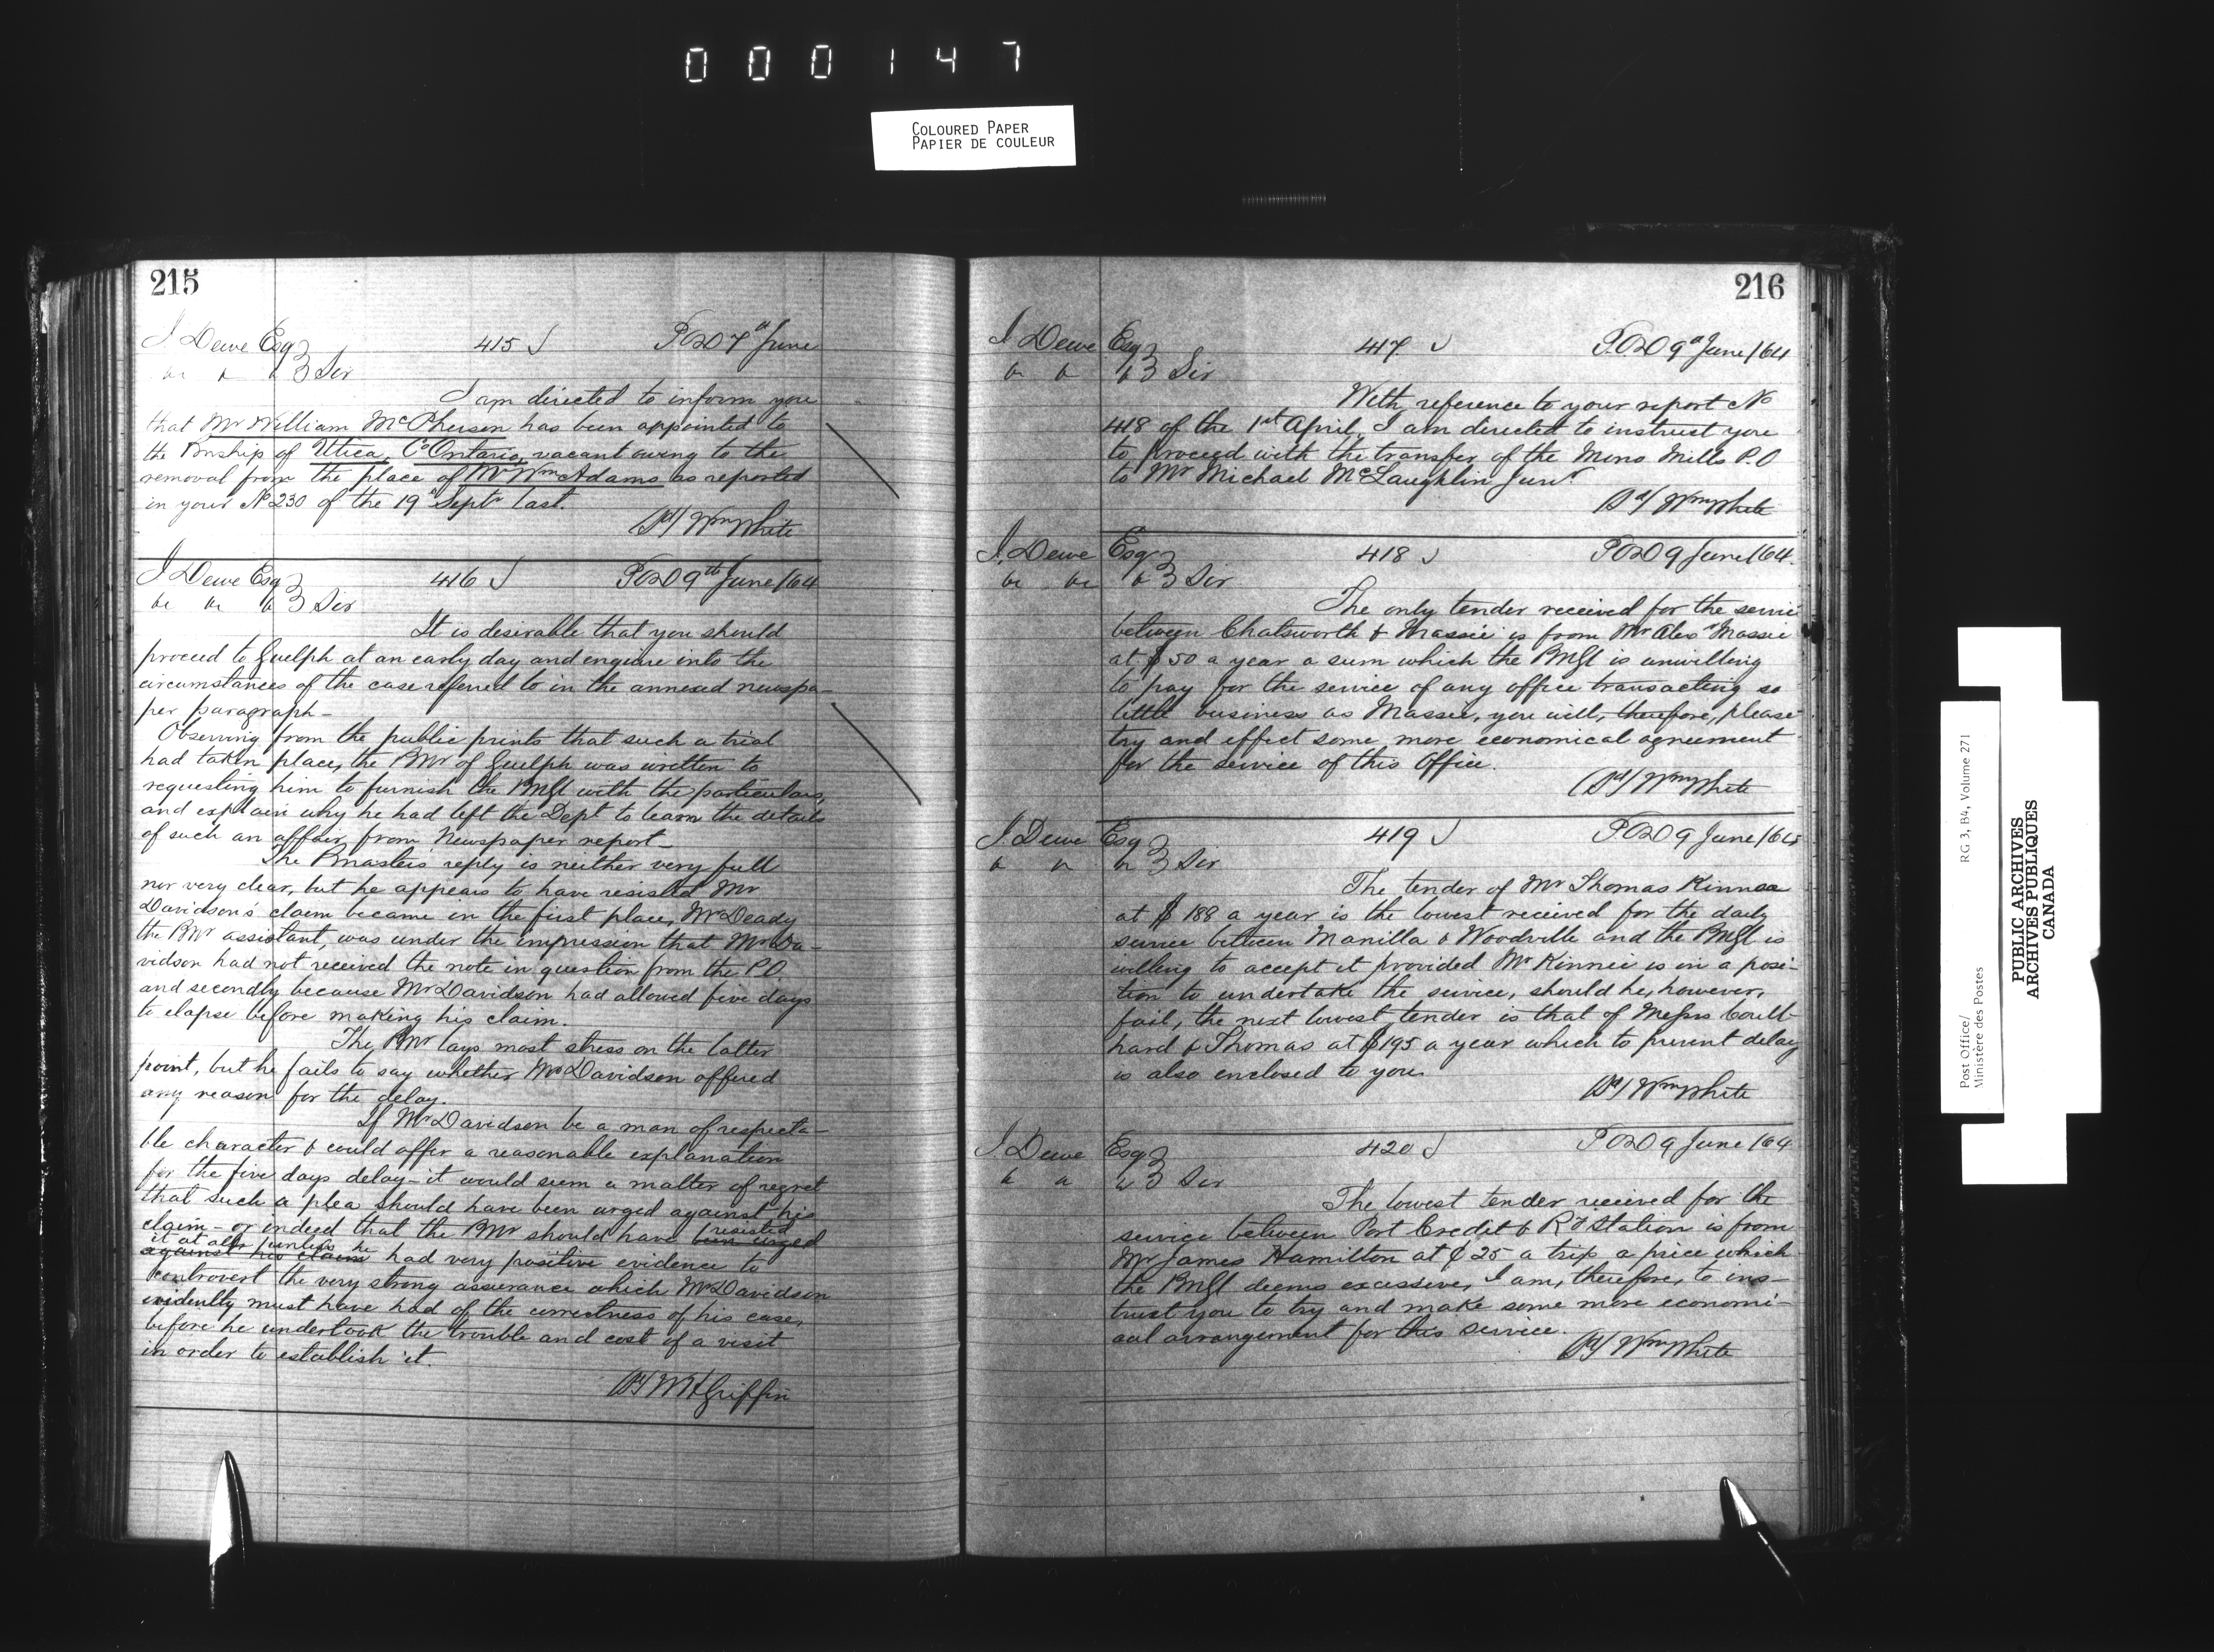 000147
COLOURED PAPER
PAPIER DE COULEUR
215
J Dewe Esq 415 POD 7th June
&c & & Sir
I am directed to inform you
that Mr William McPherson has been appointed to
the Pmship of Utica, Co Ontario, vacant owing to the
removal from the place of Mr Wm Adams as reported
in your No 230 of the 19th Septr last.
(Sd) Wm White
J Dewe Esq 416 POD 9th June /64
&c &c & Sir
It is desirable that you should
proceed to Guelph at an early day and enquire into the
circumstances of the case referred to in the annexed newspa-
per paragraph-
Observing from the public prints that such a trial
had taken place, the PMr of Guelph was written to
requesting him to furnish the PMGl with the particulars,
and explain why he had left the Dept to learn the details
of such an affair from Newspaper report-
The Pmasters reply is neither very full
nor very clear, but he appears to have resisted Mr
Davidson's claim became in the first place, Mr Deady
the PMr assistant, was under the impression that Mr Da-
vidson had not received the note in question from the PO
and secondly because Mr Davidson had allowed five days
to elapse before making his claim.
The PMr lays most stress on the latter
point, but he fails to say whether Mr Davidson offered
any reason for the delay.
If Mr Davidson be a man of respecta-
ble character & could offer a reasonable explanation
for the five days delay- it would seem a matter of regret
that such a plea should have been urged against his
claim - or indeed that the PMr should have been urged resisted
against his claim it at all unless he had very positive evidence to
controvert the very strong assurance which Mr Davidson
evidently must have had of the correctness of his case,
before he undertook the trouble and cost of a visit
in order to establish it.
(Sd) WH Griffin
216
J Dewe Esq 417 P.OD 9th June /64
& & & Sir
With reference to your report No
418 of the 1st April, I am directed to instruct you
to proceed with the transfer of the Mono Mills P.O
to Mr Michael McLaughlin Junr.
(Sd) Wm White
J. Dewe Esq 418 POD 9 June /64.
&c &c & Sir
The only tender received for the service
between Chatsworth & Massie is from Mr Alexr Massie
at $50 a year a sum which the PMGl is unwilling
to pay for the service of any office transacting so
little business as Massie, you will, therefore, please
try and effect some more economical agreement
for the service of this Office.
(Sd) Wm White
J. Dewe Esq 419 POD 9 June /64
& & & Sir
The tender of Mr Thomas Kinnee
at $188 a year is the lowest received for the daily
service between Manilla & Woodville and the PMGl is
willing to accept it provided Mr Kinnee is in a posi-
tion to undertake the service, should he, however,
fail, the next lowest tender is that of Messrs Coult-
hard & Thomas at $195 a year which to prevent delay
is also enclosed to you
(Sd) Wm White
J. Dewe Esq 420 POD 9 June /64
& & & Sir
The lowest tender received for the
service between Port Credit & Rd Station is from
Mr James Hamilton at ¢25 a trip a price which
the PMGl deems excessive, I am, therefore, to ins-
truct you to try and make some more economi-
cal arrangement for this service.
(Sd) Wm White
Post Office/
Ministère des Postes
RG 3, B4, Volume 271
PUBLIC ARCHIVES
ARCHIVES PUBLIQUES
CANADA